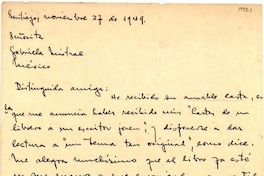 Santiago, noviembre 27 de 1949.
Señorita
Gabriela Mistral
México
Distinguida amiga:
He recibido su amable carta, en
la que me anuncia haber recibido mis "Cartas de un
librero a un escritor joven" y disponerse a dar
lectura a un "tema tan original", como dice.
Me alegra muchísimo que el libro ya esté